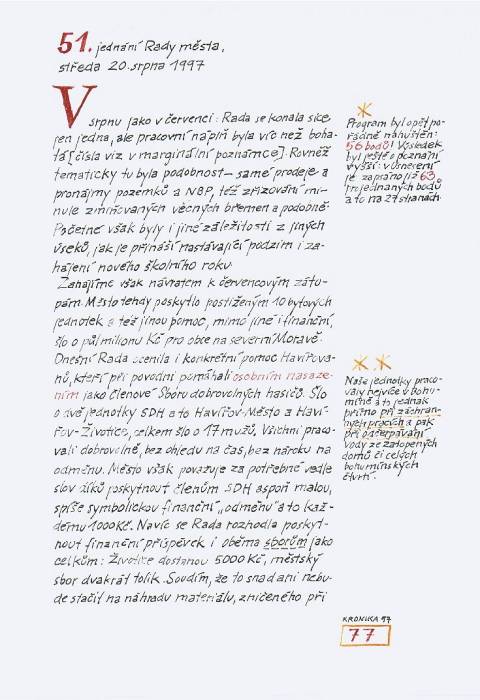 51. jednání Rady města,
středa 20. srpna 1997
V srpnu jako v červenci: Rada se konala sice
jen jedna, ale pracovní náplň byla víc než boha-
tá [čísla viz v marginální poznámce]. Rovněž
tematicky tu byla podobnost – samé prodeje a
pronájmy pozemků a NBP, též zřizování mi-
nule zmiňovaných věcných břemen a podobně.
Početné však byly i jiné záležitosti z jiných
úseků, jak je přináší nastávající podzim i za-
hájení nového školního roku.
Zahajme však návratem k červencovým záto-
pám. Město tehdy poskytlo postiženým 10 bytových
jednotek a též jinou pomoc, mimo jiné i finanční,
šlo o půl milionu Kč pro obce na severní Moravě.
Dnešní Rada ocenila i konkrétní pomoc Havířova-
nů, kteří při povodni pomáhali osobním nasaze-
ním jako členové Sboru dobrovolných hasičů. Šlo
o dvě jednotky SDH a to Havířov-Město a Haví-
řov-Životice, celkem šlo o 17 mužů. Všichni praco-
vali dobrovolně, bez ohledu na čas, bez nároku na
odměnu. Město však považuje za potřebné vedle
slov díků poskytnout členům SDH aspoň malou,
spíše symbolickou finanční „odměnu" a to kaž-
dému 1000 Kč. Navíc se Rada rozhodla poskyt-
nout finanční příspěvek i oběma sborům jako
celkům: Životice dostanou 5000 Kč, městský
sbor dvakrát tolik. Soudím, že to snad ani nebu-
de stačit na náhradu materiálu, zničeného při
Program byl opět po-
řádně nahuštěn:
56 bodů! Výsledek
byl ještě o poznání
vyšší: v usnesení
je zapsáno již 63
projednaných bodů
a to na 27 stranách.
Naše jednotky praco-
valy nejvíce v Bohu-
míně a to jednak
přímo při záchran-
ných pracích a pak
při odčerpávání
vody ze zatopených
domů či celých
bohumínských
čtvrtí.
KRONIKA 97
77